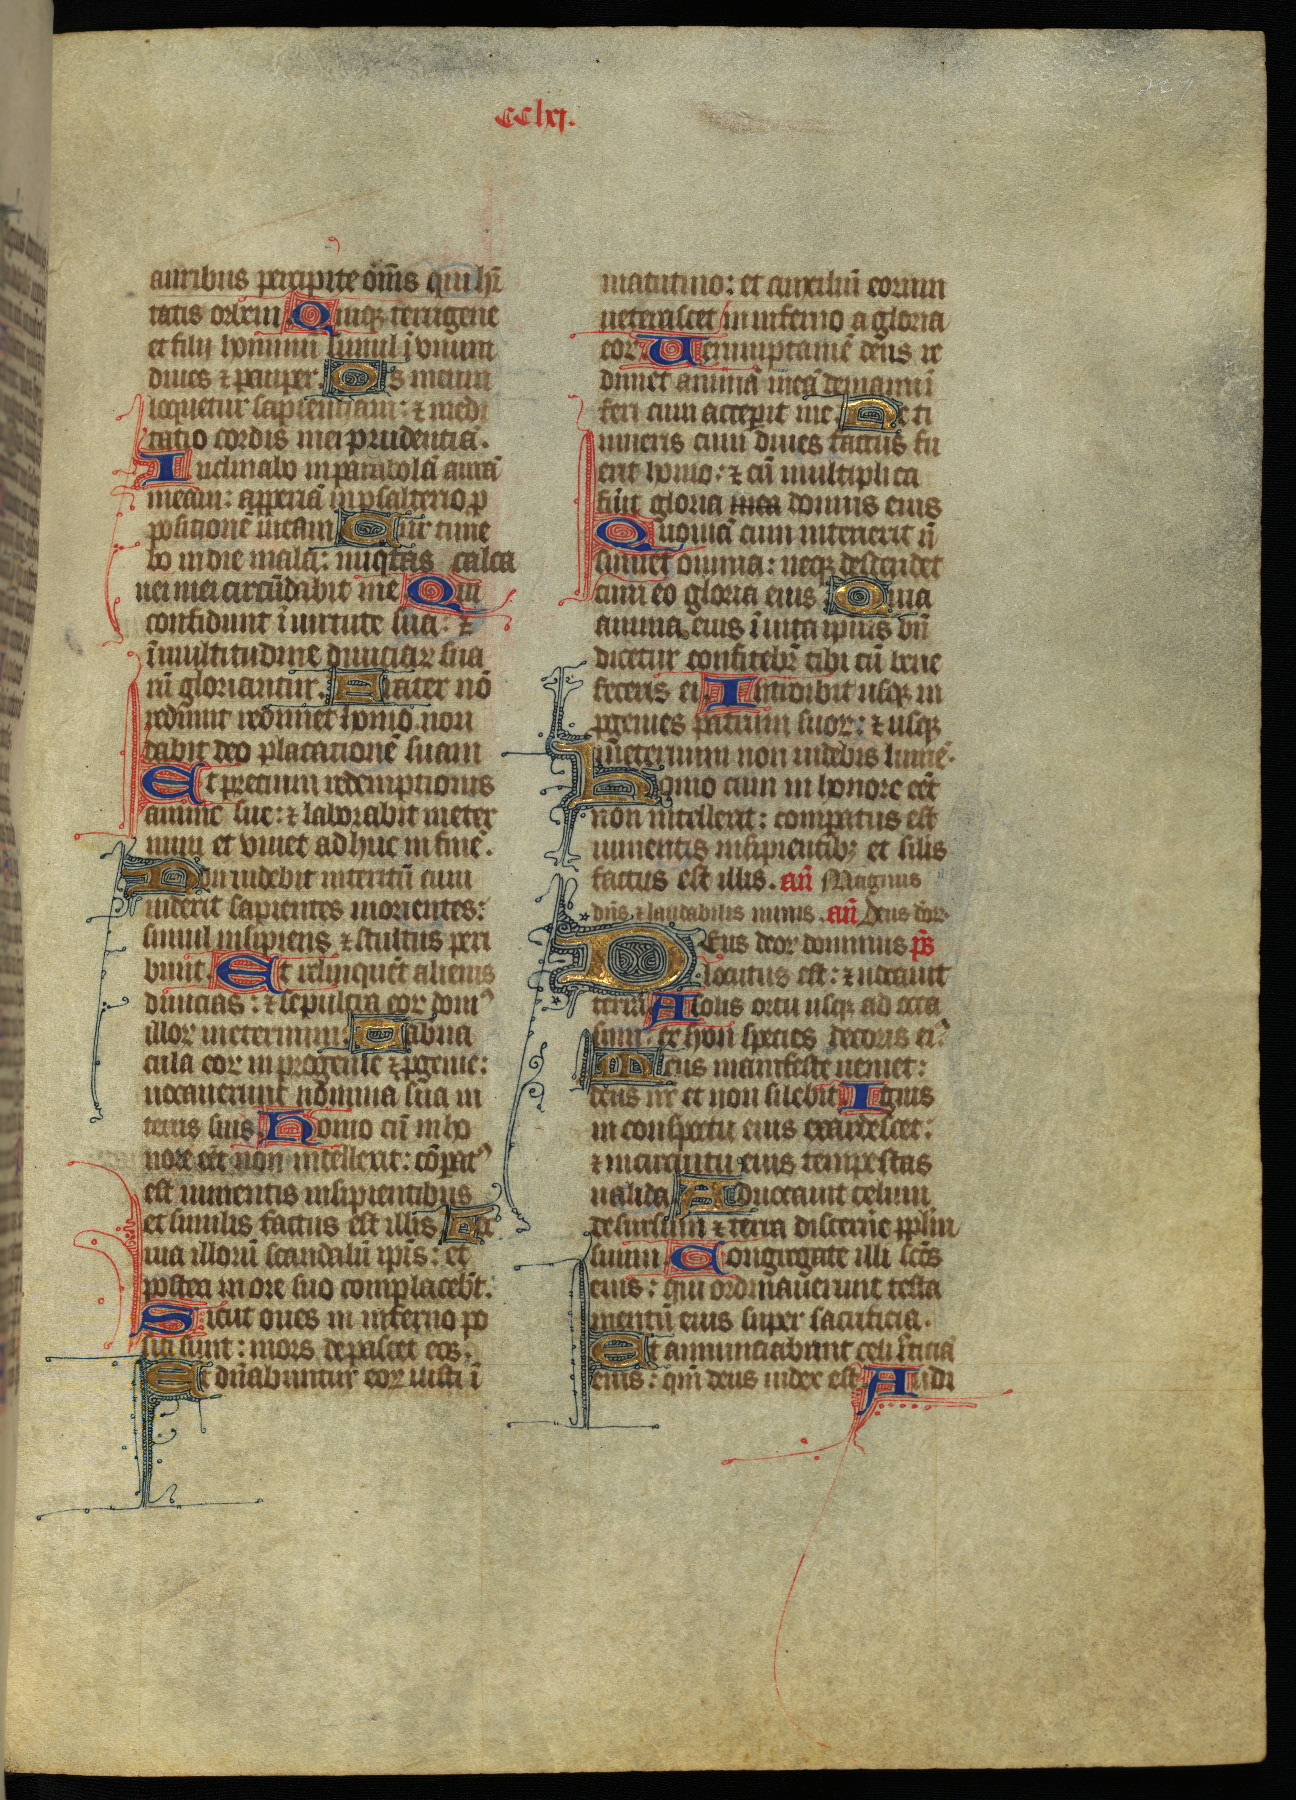 CClxj.
auribus percipite om̄s qui hī
tatis orbem Quiqꝫ terrigene
et filij hominū simul ī vnum
diues ⁊ pauper. Os meum
loquetur sapientiam: ⁊ medi
tatio cordis mei prudentiā.
Inclinabo in parabolā aurē
meam: apperiā in psalterio ꝓ
positionē meam Cur time
bo in die mala: iniqͥtas calca
nei mei circūdabit me Qui
confidunt ī uirtute sua: ⁊
ī multitudine diuiciaꝝ sua
rū gloriantur. Frater nō
redimit redimet homo non
dabit deo placationē suam
Et precium redemptionis
anime sue: ⁊ laborabit in eter
num et viuet ad huc in finē.
Non uidebit interitū cum
uiderit sapientes morientes:
simul insipiens ⁊ stultus peri
bunt. Et relinquēt alienis
diuicias: ⁊ sepulcra eoꝝ domꝰ
illoꝝ in eternum. Taberna
cula eoꝝ in progenie ⁊ ꝓgenie:
uocauerunt nomina sua in
terris suis Homo cū in ho
nore eēt non intellexit: cōpatꝰ
est iumentis insipientibus
et similis factus est illis Hec
uia illorū scandalū ipīs: et
postea in ore suo complacebūt.
Sicut oues in inferno po
siti sunt: mors depascet eos.
Et dn̄abuntur eoꝝ iusti ī
matutino: et auxiliū eorum
ueterascet in inferno a gloria
eoꝝ Uerumptamē deus re
dimet animā meā de manu ī
feri cum acceperit me Ne ti
mueris cum diues factus fu
erit homo: ⁊ cū multiplica
ta fūit gloria mea domus eius
Quoniā cum interierit nō
sumet omnia: neqꝫ descendet
cum eo gloria eius Quia
anima eius ī uita ipius bn̄
dicetur confitebr̄ tibi cū bene
feceris ei Introibit usqꝫ in
ꝓgenies patrum suoꝝ: ⁊ usqꝫ
in eternum non uidebis lumē.
Homo cum in honore eēt
non intellexit: compatus est
iumentis insipientibꝫ et silis
factus est illis. an̄ Magnus
dn̄s ⁊ laudabilis nimis. an̄ Deus deoꝝ.
Deus deoꝝ dominus ps̄
locutus est: ⁊ uocauit
terrā A solis ortu usqꝫ ad occa
sum: ex syon species decoris eiꝰ
Deus manifeste ueniet:
deus nr̄ et non silebit Ignis
in conspectu eius exardescet:
⁊ in circuitu eius tempestas
ualida Aduocauit celum
desursum ⁊ terrā discernē pplm̄
suum Congregate illi scōs
eius: qui ordinauerunt testa
mentū eius super sacrificia.
Et annunciabunt celi iusticiā
eius: qm̄ deus iudex est Audi